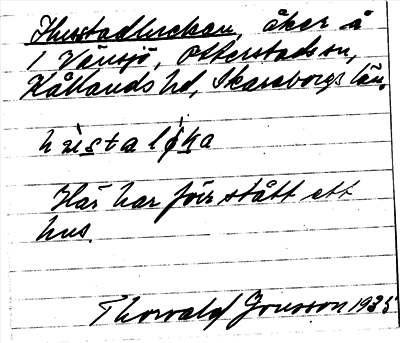 Husstadluckan, åker å
1 Vänsjö, Otterstads sn,
Kållands hd, Skaraborgs län,
Här har förr stått ett
hus.
Thorvald Jonsson 1935